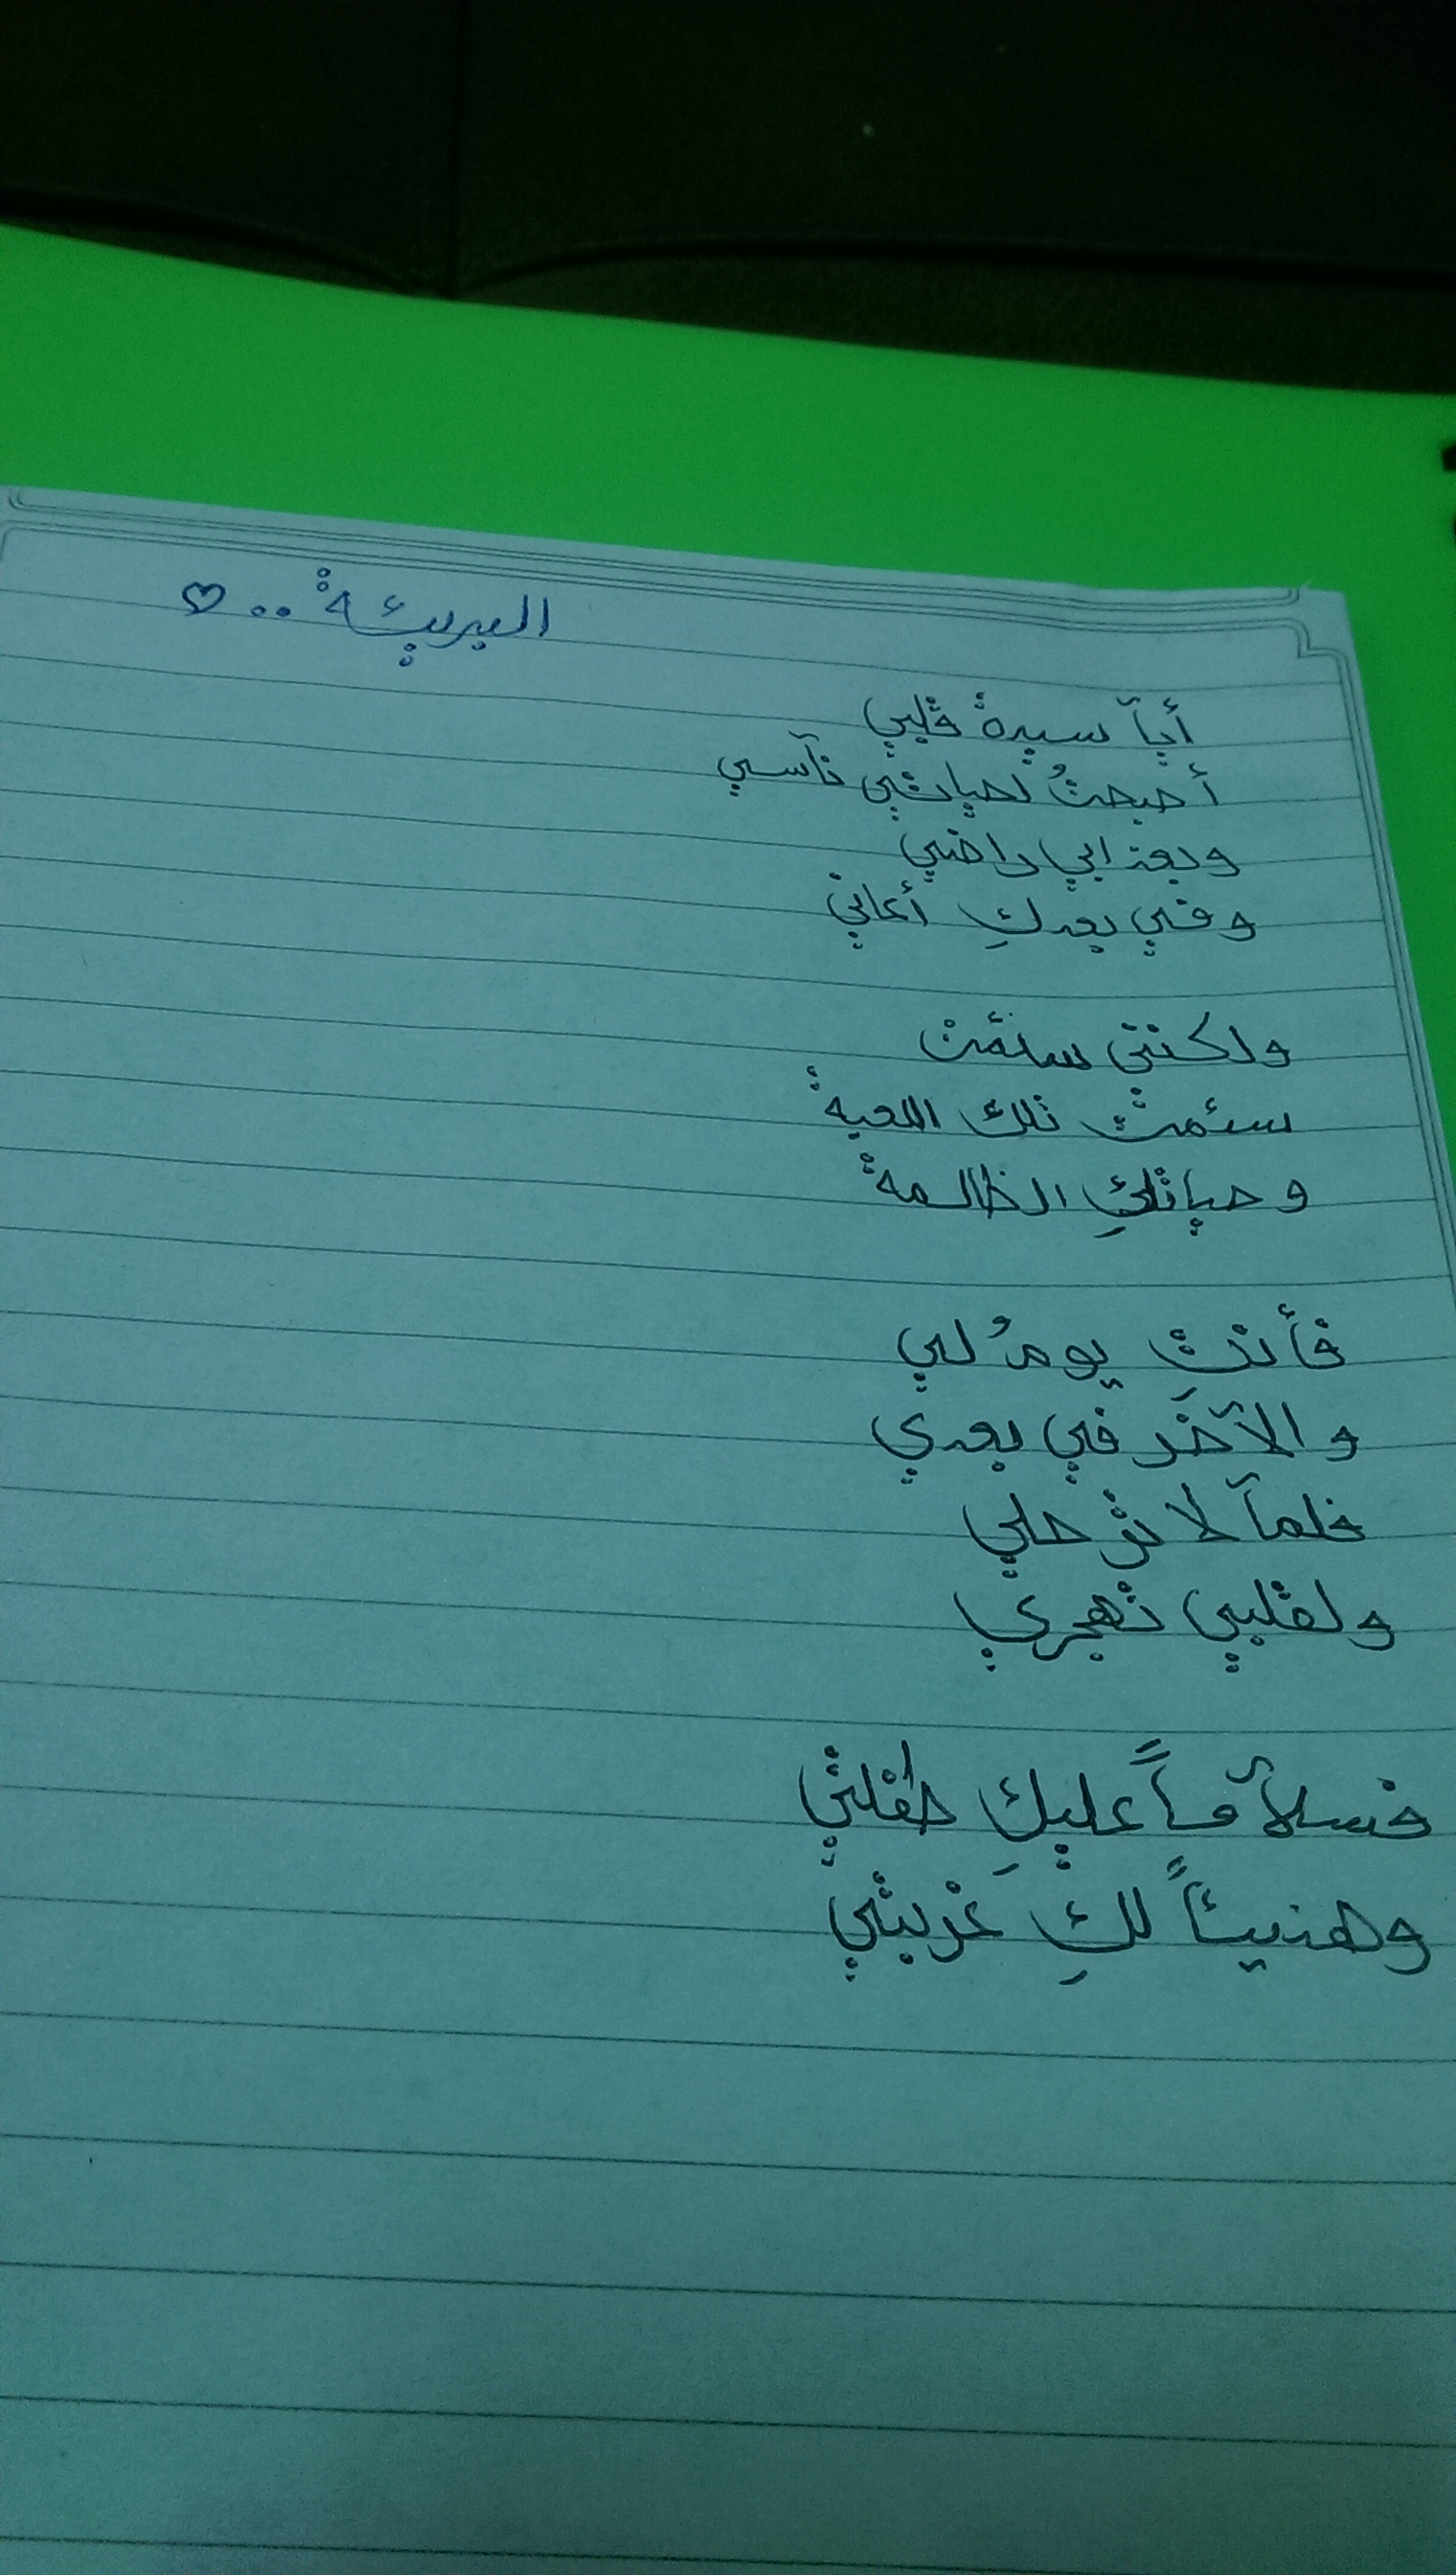 البريئة .. ♡
أيآ سيدة قلبي
أصبحتُ لحياتي نآسي
وبعذابي راضي
وفي بعدكِ أعاني
ولكنني سئمت
سئمت تلك اللعبة
وحياتكِ الظالمة
فأنتِ يومُ لي
والآخر في بعدي
فلمآ لا ترحلي
ولقلبي تهجري
فسلآماً عليكِ طفلتي
وهنيئاً لكِ غربتي